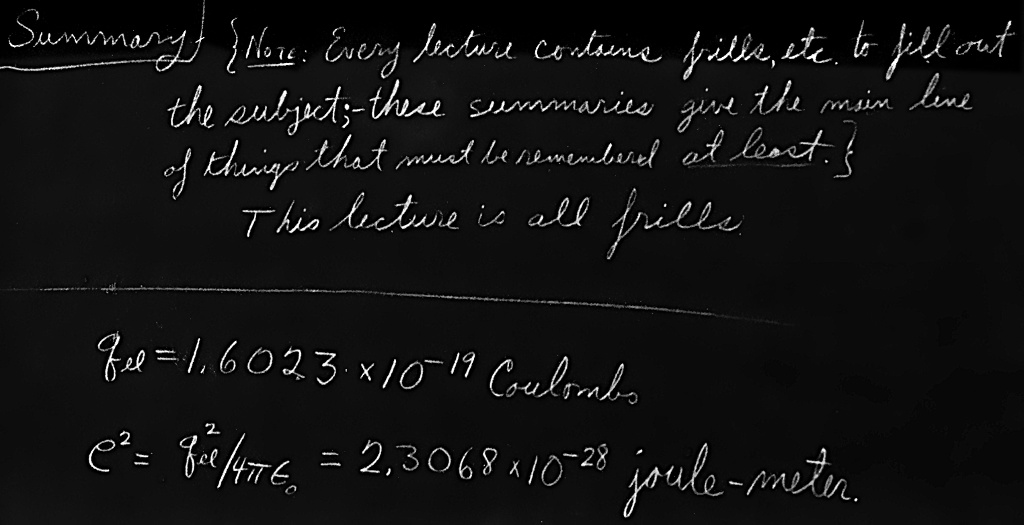 Summary {NOTE: Every lecture contains frills, etc. to fill out
the subject;-these summaries give the main line
of things that must be remembered at least.}
This lecture is all frills
qel = 1.6023 × 10⁻¹⁹ Coulombs
e² = qel²/4πε₀ = 2.3068 × 10⁻²⁸ joule-meter.